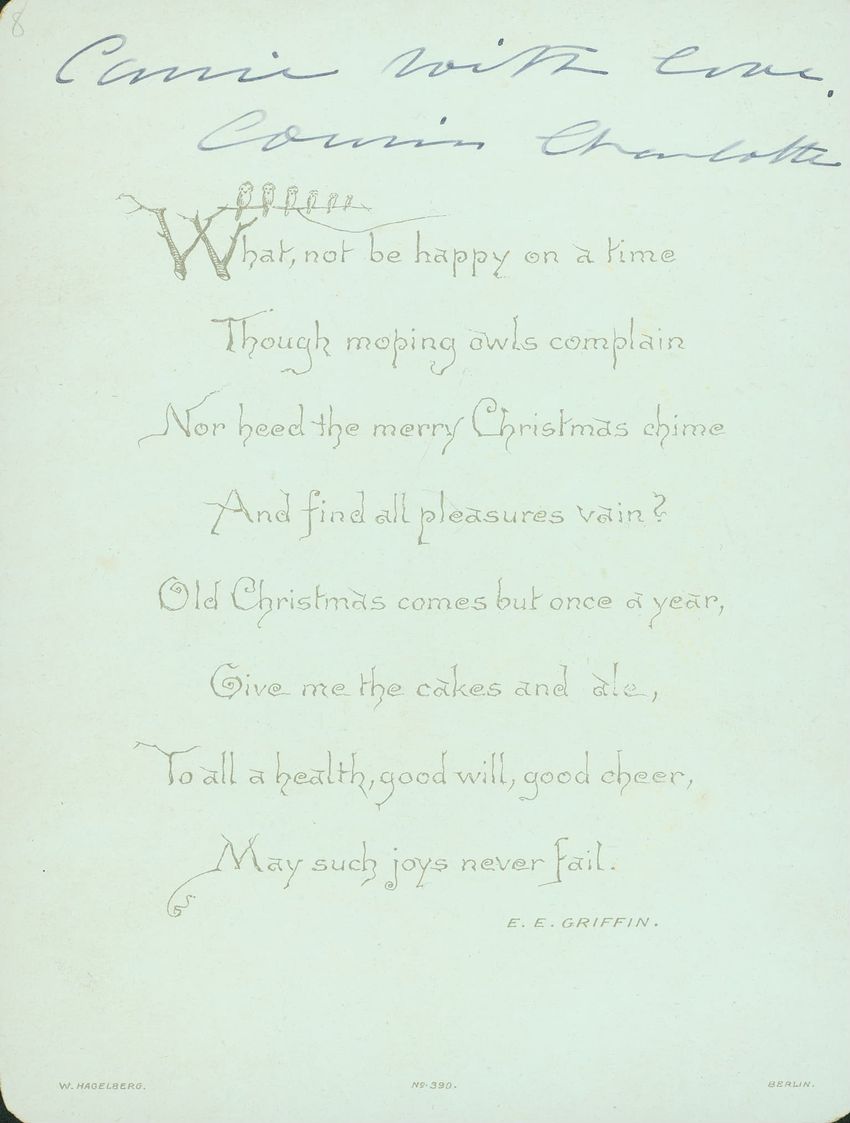 8
Carrie with love.
Cousin Charlotte
What, not be happy on a time
Though moping owls complain
Nor heed the merry Christmas chime
And find all pleasures vain?
Old Christmas comes but once a year,
Give me the cakes and ale,
To all a health, good will, good cheer,
May such joys never fail.
E. E. GRIFFIN.
W. HAGELBERG. No. 390. BERLIN.